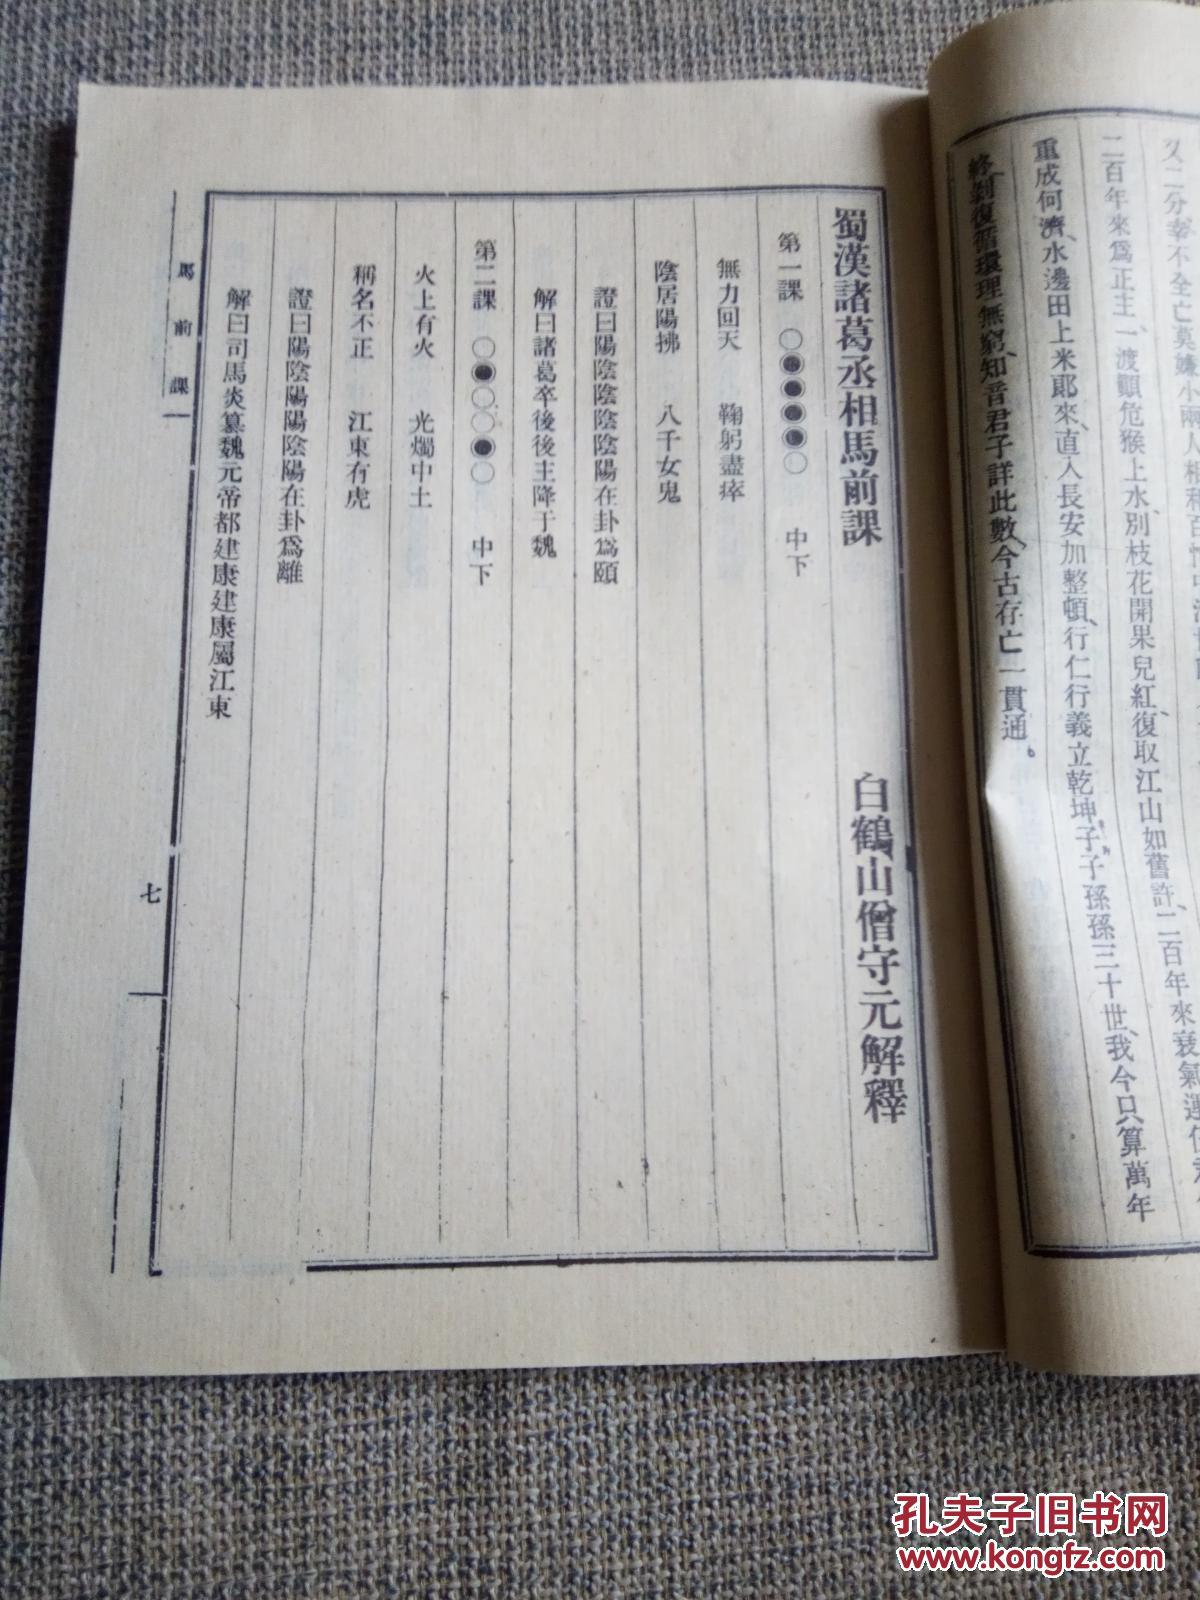 二百年來爲正主、一渡顚危猴上水、別枝花開果兒紅、復取江山如舊許、二百年來衰氣運
重成何濟、水邊田上米郞來、直入長安加整頓、行仁行義立乾坤、子子孫孫三十世、我今只算萬年
終、剝復循環理無窮、知音君子詳此數、今古存亡一貫通。
蜀漢諸葛丞相馬前課　白鶴山僧守元解釋
第一課　○●●●●○　中下
無力回天　鞠躬盡瘁
陰居陽拂　八千女鬼
證曰陽陰陰陰陰陽在卦爲頤
解曰諸葛卒後後主降于魏
第二課　○●○○●○　中下
火上有火　光燭中土
稱名不正　江東有虎
證曰陽陰陽陽陰陽在卦爲離
解曰司馬炎篡魏元帝都建康建康屬江東
馬前課
七
孔夫子旧书网
www.kongfz.com